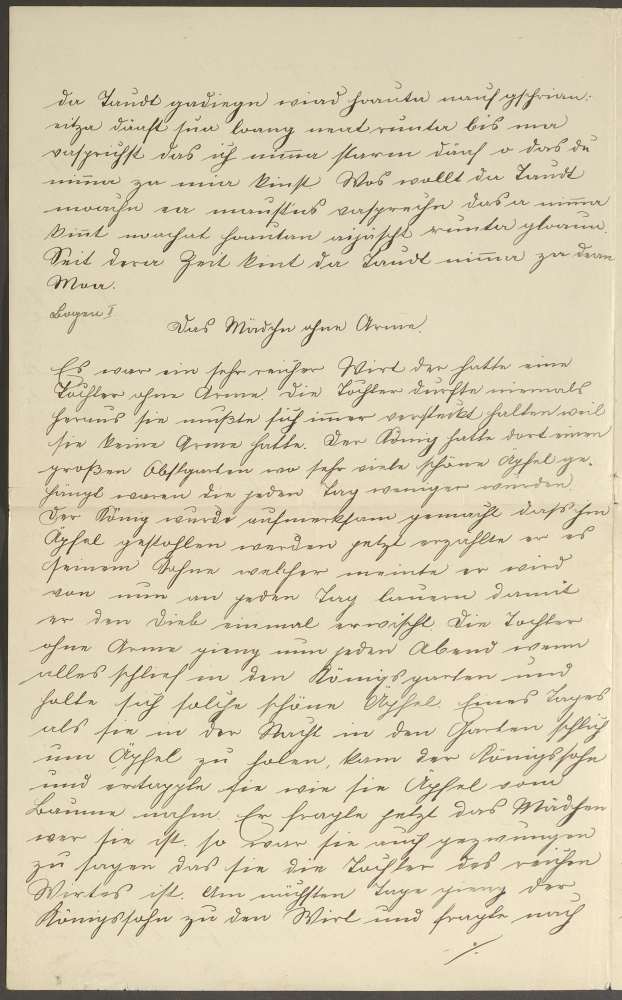 da Taudt gadiegn wiad hrauta nauf gschrian:
eitza därfst sua loang neat runta bis ma
vasprichst das ich nimma starm därf o das du
nimma zu mia kinst Wos wollt da Taudt
moachn ea maustns vasprechn das a nimma
kimt noachat hautan aijäscht runta gloaun.
Seit dera Zeit kint da Taudt nimma zu dean
Moa.
Bogen I
Das Mädchn ohne Arme.
Es war ein sehr reicher Wirt der hatte eine
Tochter ohne Arme. Die Tochter durfte niemals
heraus sie mußte sich immer versteckt halten weil
sie keine Arme hatte. Der König hatte dort einen
großen Obstgarten wo sehr viele schöne Äpfel ge-
hängt waren die jeden Tag weniger wurden.
Der König wurde aufmerksam gemacht dass ihm
Äpfel gestohlen werden jetzt erzählte er es
seinem Sohne welcher meinte er wird
von nun an jeden Tag lauern damit
er den Dieb einmal erwischt Die Tochter
ohne Arme gieng nun jeden Abend wenn
alles schlief in den Königsgarten und
holte sich solche schöne Äpfel. Eines Tages
als sie in der Nacht in den Garten schlich
um Äpfel zu holen, kam der Königssohn
und ertappte sie wie sie Äpfel vom
Baume nahm. Er fragte jetzt das Mädchen
wer sie ist. so war sie auch gezwungen
zu sagen das sie die Tochter des reichen
Wirtes ist. Am nächsten Tage gieng der
Königssohn zu den Wirt und fragte nach
./.